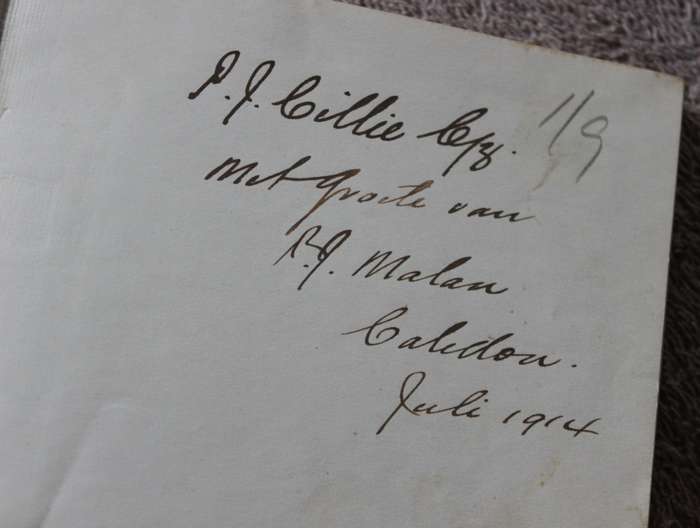 P. J. Cillie Czn. 1/9
Met Groete van
P.J. Malan
Caledon.
Juli 1914